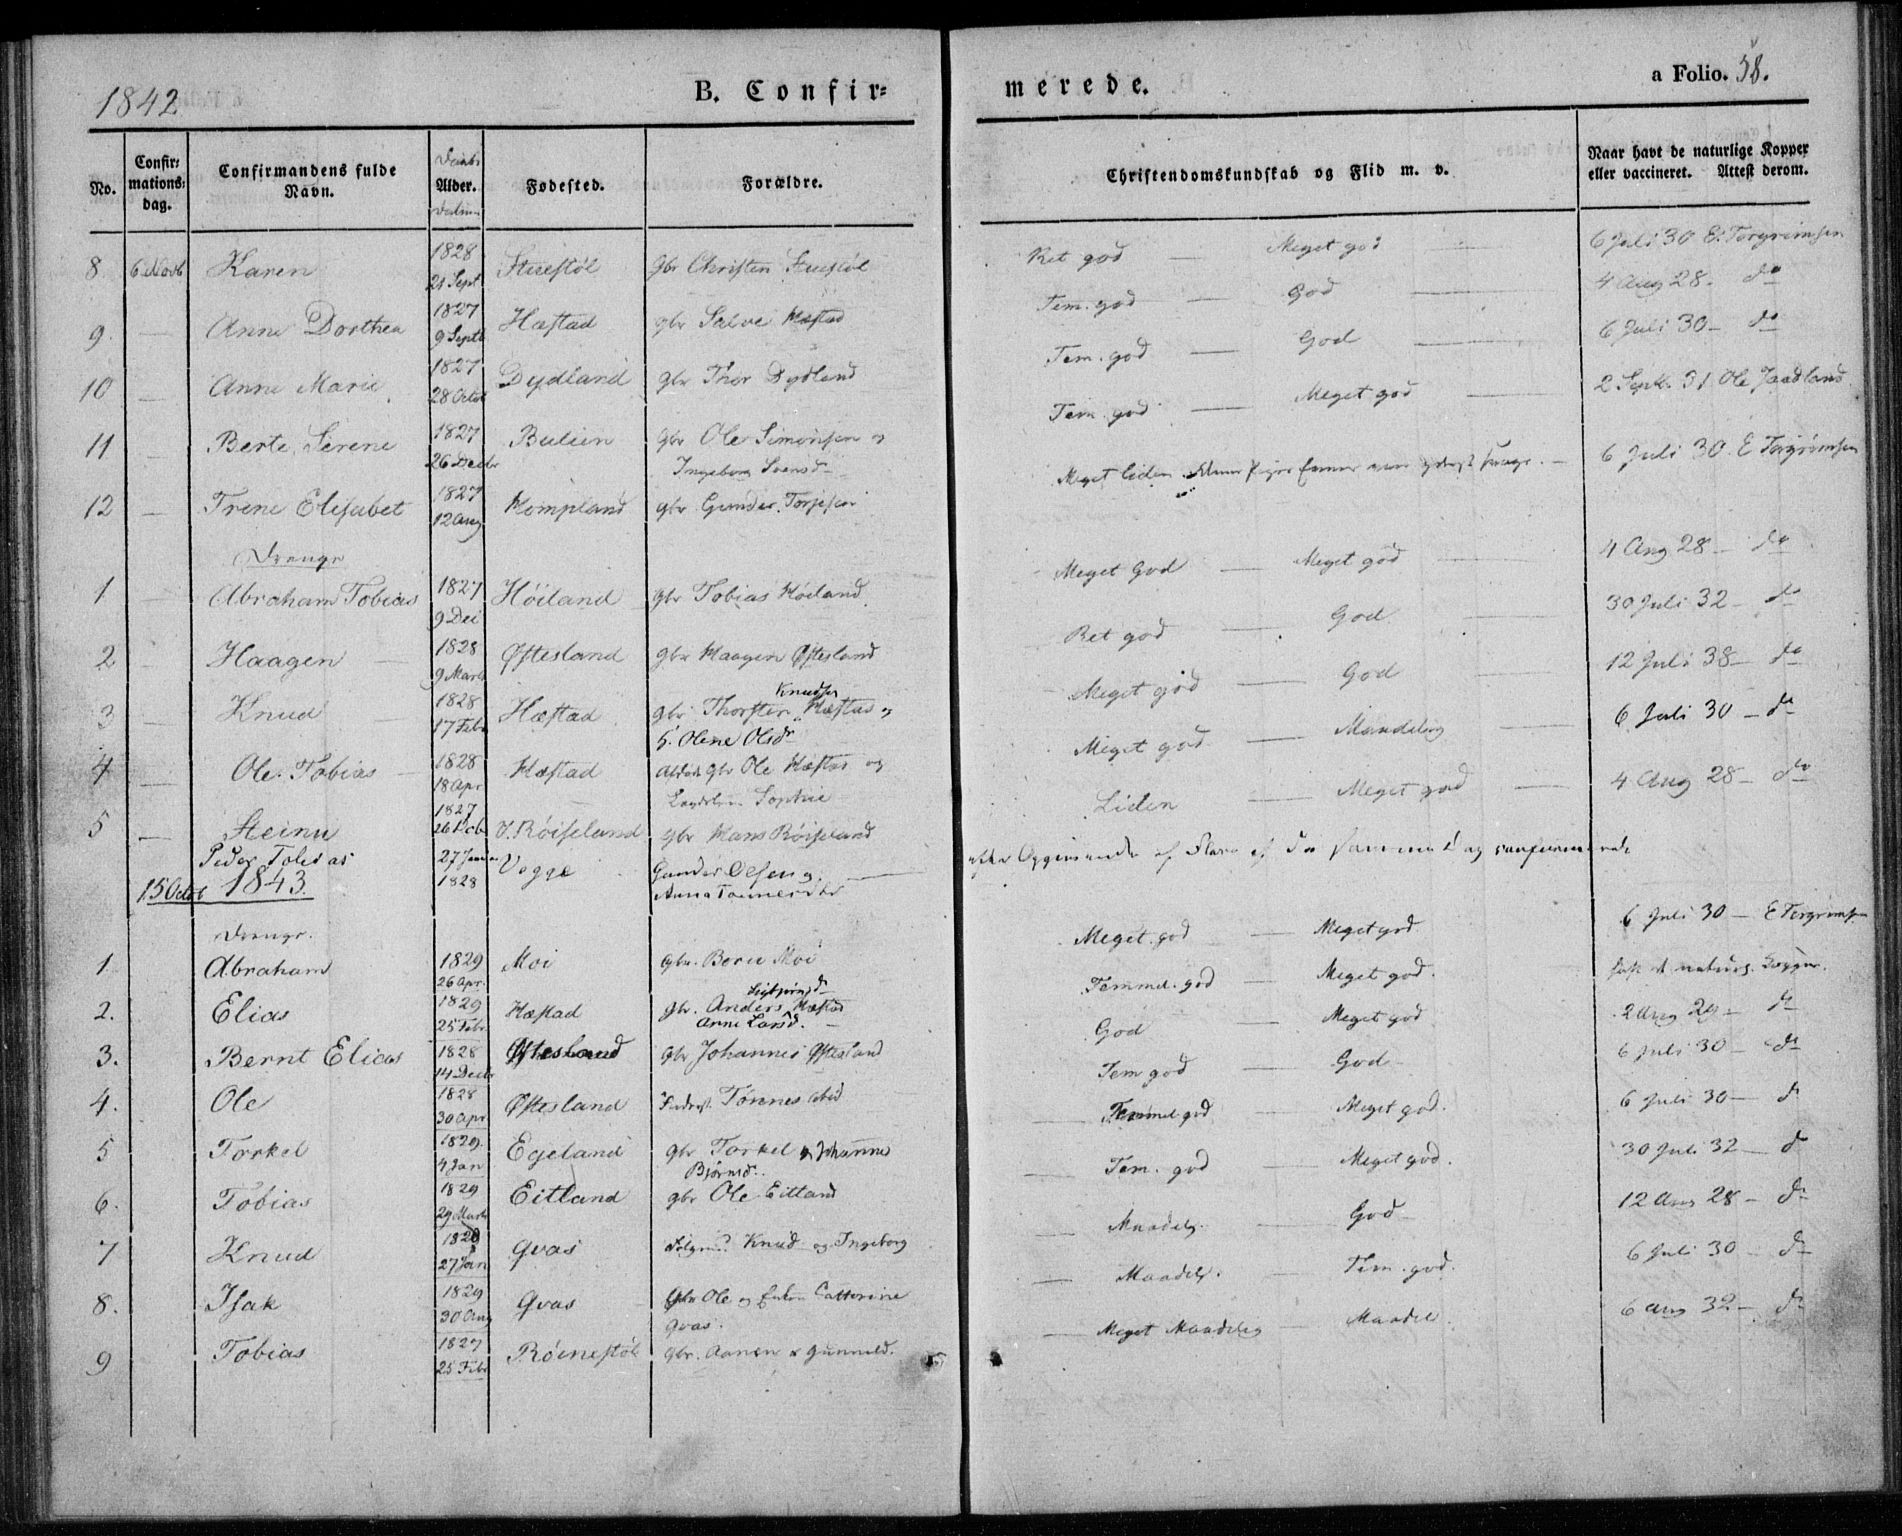 1842
B. Confir=
merede.
a Folio. 38.
No.
Confir=
mations=
dag.
Confirmandens fulde
Navn.
Daabs
Alder.
Datum
Fødested.
Forældre.
Christendomskundskab og Flid m. v.
Naar havt de naturlige Kopper
eller vaccineret. Attest derom.
8 6 Novb Karen 1828 21 Sept Stuestøl gbr Christen Stuestøl Ret god — Meget god — 6 Juli 30 E. Torgrimsen
9 — Anne Dorthea 1827 9 Septb Hæstad gbr Salve Hæstad Tem. god — God — 4 Aug 28 — do
10 — Anne Marie 1827 28 Octob Dydland gbr Thor Dydland Tem. god — God — 6 Juli 30 — do
11 — Berte Serene 1827 26 Decbr Bulien gbr Ole Simonsen og Tem. god — Meget god — 2 Sept. 31 Ole Jaadland
Ingeborg Svensd
12 — Trene Elisabet 1827 12 Aug Kompland gbr Gunder Torjesen Meget Liden 6 Juli 30 E Torgrimsen
Drenge
1 — Abraham Tobias 1827 9 Dec Høiland gbr Tobias Høiland Meget God — Meget god — 4 Aug 28 — do
2 — Haagen 1828 9 Marts Øftesland gbr Haagen Øftesland Ret god — God 30 Juli 32 — do
3 — Knud 1828 17 Febr Hæstad gbr Thorsten Knudsen Hæstad og Meget god — God — 12 Juli 38 — do
h. Olene Olsdr
4 — Ole Tobias 1828 18 Apr Hæstad gbr Ole Hæstad og Meget god — Maadelig — 6 Juli 30 — do
Sophie
5 — Steinu 1827 26 Octb V. Røiseland gbr Hans Røiseland Liden — Meget god — 4 Aug 28 — do
Peder Tobias 27 Januar 1828 Vegge Gunder Olsen og
Anna Tønnesdtr
15 Octob 1843.
Drenge.
1 Abraham 1829 26 Apr. Moi gbr. Beru Moi Meget god — Meget god 6 Juli 30 — E Torgrimsen
2. Elias 1829 25 Febr Hæstad gbr. Anders Hæstad Temmel. god — Meget god. naturl. Kopper.
Anne Larsd.
3. Bernt Elias 1828 14 Decbr Øftesland gbr Johannes Øftesland God — Meget god 2 Aug 29 — do
4. Ole 1828 30 Apr Øftesland Tønnes ibid Tem god — God 6 Juli 30 — do
5 Torkel 1829. 4 Jan Egeland gbr Torkel & Johanne Temmel god — Meget god. 6 Juli 30 — do
Bjørnsd.
6. Tobias 1829 29 Marts Eitland gbr Ole Eitland Tem. god — Meget god. 30 Juli 32 — do
7 Knud 1828 27 Jan Qvas Knud og Ingeborg Maadelg. — God 12 Aug 28 — do
8. Isak 1829 30 Aug Qvas Gbr Ole og Catterine Maadel. — Tem. god. 6 Juli 30 — do
Qvas.
9 Tobias 1827 25 Febr Røinestøl gbr. Aanen & Gunnild. Meget Maadelig — Maadel. 6 Aug 32 — do